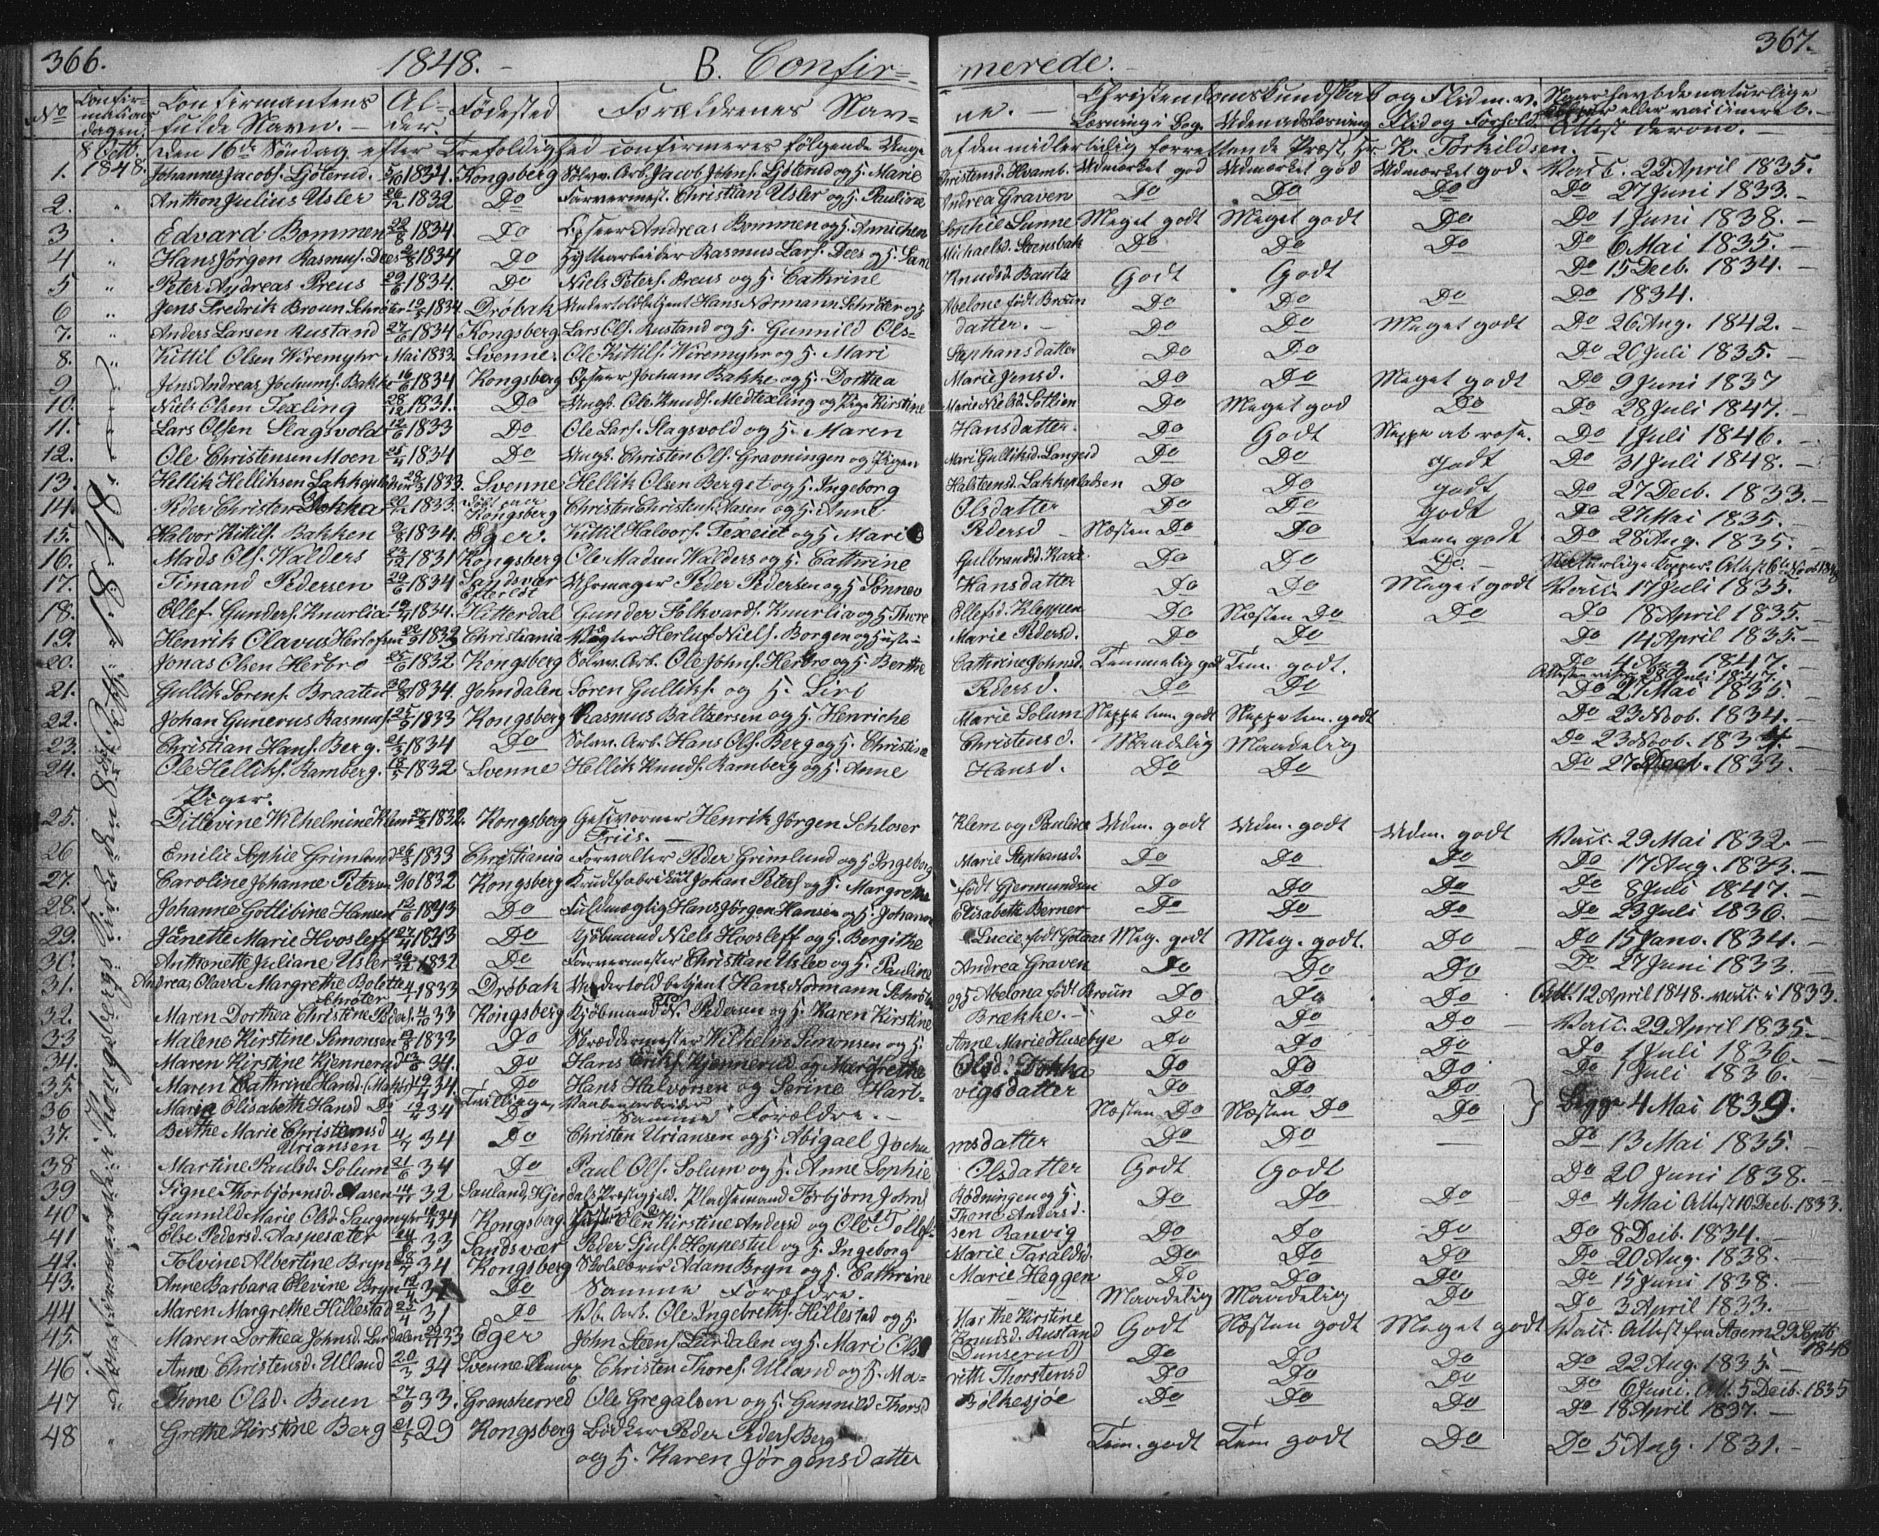 366. 1848. B. Confir= merede. 367.
No Confirmations dagen. Confirmantens fulde Navn. Alder. Fødested Forældrenes Navne. Christendomskundskab og Flid m.v. Læsning i Bog. Udenadslæsning Flid og Forhold Naar havt de naturlige Kopper eller vaccineret. Attest derom.
8 Octb. 1848. den 16de Søndag efter Trefoldighed confirmeres følgende Unge af den midlertidig forrettende Præst, Hr. K. Torkildsen.
1. Johannes Jacobs. Ljøterud. 5/10 1834. Kongsberg Sølvv. Arb. Jacob Johns. Ljøterud og H. Marie Christensd. Hvamb. Udmærket god Udmærket god Udmærket god. Vacc. 22 April 1835.
2. " Anthon Julius Usler 26/12 1832 Do Farvermest. Christian Usler og H. Pauline Andrea Graven Do Do Do Do 27 Juni 1833.
3 " Edvard Bommen 29/8 1834. Do Opseer Andreas Bommen og H. Annichen Sophie Lunne Meget godt Meget godt Do Do 1 Juni 1838.
4 " Hans Jörgen Rasmus. Dees 2/8 1834 Do Hyttearbeider Rasmus Lars. Dees og H. Michaelsd. Steensbak Do Do Do Do 6 Mai 1835.
5 " Peter Andreas Preus 29/6 1834. Do Niels Peters. Preus og H. Cathrine Knudsd. Bautz Godt Godt Do 15 Decb. 1834.
6 " Jens Fredrik Broun Schrøter 19/5 1834. Dröbak Undertoldbetjent Hans Normann Schröter og H Abelone født Broun Do Do Do Do 1834.
7. " Anders Larsen Rustand 27/6 1834 Kongsberg Lars Ols. Rustand og H. Gunnild Ols= datter. Do Do Meget godt Do 26 Aug. 1842.
8. " Kittil Olsen Wiremyhr Mai 1833. Svenne. Ole Kittils. Wiremyhr og H. Mari Stephansdatter Do Do Do 20 Juli 1835.
9 Jens Andreas Jochums. Bakke 16/6 1834 Kongsberg Opseer Jochum Bakke og H. Dorthea Marie Jensd. Do Do Meget godt Do 9 Juni 1837
10. Niels Olsen Texling 28/12 1831. Do Ungk. Ole Knuds. Medtexling og Pige Kirstine Marie Nielsd. Do Meget god Do Do 28 Juli 1847.
11. Lars Olsen Slagsvold 12/6 1833 Do Ole Lars. Slagsvold og H. Maren Hansdatter. Do Godt Neppe at rose. Do 1 Juli 1846.
12. Ole Christensen Moen 25/4 1834 Do Ungk. Christen Ols. Gravningen og Pigen Mari Gulliksd. Langerd Do Do Godt Do 31 Juli 1848.
13. Hellik Helliksen 28/3 1833. Svenne. Hellik Olsen Berget og H. Ingeborg Halsteensd. Do Do godt Do 27 Decb. 1833.
14. Peder Christen Dokka 20/12 1833. Kongsberg Christen Christens. Aasen og H. Anne Olsdatter Do Do Godt Do 27 Mai 1835.
15. Halvor Kittils. Bakken 2/8 1834. Eger. Kittil Halvors. Texeid og H. Mari Pedersd Næsten Do Do Tem. godt Do 28 Aug. 1835.
16. Mads Ols. Walders 23/12 1831 Kongsberg Ole Madsen Walders og H. Cathrine Gulbrandsd. Do Do Do Naturlige Kopper. Attest 6te
17. Timand Pedersen 29/6 1834 Sandsvær Uhrmager Peder Pedersen og H. Sønnev Hansdatter Do Do Meget godt Vacc. 17 Juli 1835.
18. Ellef Gunders. Knurlia 19/4 1834. Hitterdal Gunder Folkvards. Knurlia og H. Thore Ellefsd. Kleppen Do Næsten Do Do Do 18 April 1835.
19. Henrik Olavus Herlofsen 22/9 1832 Christiania Herluf Niels. Borgen og Marie Pedersd. Do Do Do 14 April 1835.
20. Jonas Olsen Herbro 25/6 1832 Kongsberg Sølvv. Arb. Ole Johns. Herbro og H. Berthe Cathrine Johnsd. Temmelig god Tem. godt. Do 4 Aug 1847.
21. Gullik Sørens. Braaten 30/8 1834. Jondalen Søren Gulliks. og H. Siri Pedersd. Do Do Do 21 Mai 1835.
22. Johan Gunerus Rasmus. 25/5 1833 Kongsberg Rasmus Baltzersen og H. Henriche Marie Solum Neppe tem. godt Neppe tem. godt Do 23 Novb. 1834.
23. Christian Hans. Berg. 21/3 1834 Do Sølvv. Arb. Hans Ols. Berg og H. Christine Christensd. Maadelig Maadelig Do 23 Novb. 1834.
24. Ole Helliks. Ramberg. 18/5 1832 Svenne Hellik Knuds. Ramberg og H. Anne Hansd. Do Do Do 27 Decb. 1833.
Piger.
25. Ditlevine Wilhelmine Klem 27/2 1832. Kongsberg Gesvorner Henrik Jörgen Schloser Klem og Pauline Friis. Udm. godt Udm. godt Udm. godt Vacc. 29 Mai 1832.
26 Emilie Sophie Grimlund 26/3 1833 Christiania Forvalter Peder Grimlund og H. Ingeborg Marie Stephansd. Do Do Do Do 17 Aug. 1833.
27. Caroline Johanne Petersen 2/10 1832 Kongsberg Krudtfabrikør Johan Peters. og H. Margrethe født Gjermundsen Do Do Do Do 8 Juli 1847.
28. Johanne Gotlibine Hansen 12/6 1833 Do Fuldmægtig Hans Jörgen Hansen og H. Johanne Elisabeth Berner Do Do Do Do 23 Juli 1836.
29. Janette Marie Hvosleff 27/4 1833 Do Kjöbmand Niels Hvosleff og H. Bergithe Lucie født Gotaas Meg. godt Meg. godt. Do Do 15 Janv. 1834.
30. Anthonette Juliane Usler 26/12 1832 Do Farvermester Christian Usler og H. Pauline Andrea Graven Do Do Do Do 27 Juni 1833.
31. Andrea Olava Margrethe Bolette Schröter 4/1 1833 Dröbak Undertoldbetjent Hans Normann Schröter og H Abelona født Broun Do Do Do Att. 12 April 1848. vacc. i 1833.
32. Maren Dorthea Christine Peders. 4/10 33 Kongsberg Kjöbmand N. Pedersen og H. Karen Kirstine Brække. Do Do Do Vacc. 29 April 1835.
33 Malene Kirstine Simonsen 12/8 1833 Do Skræddermester Wilhelm Simonsen og H. Anne Marie Husebye Do Do Do Do 1 Juli 1836.
34. Maren Kirstine Kjennerud 13/6 34. Do Hans Eriks. Kjennerud og Margrethe Olsd. Dokka Do Do Do Do 1 Juli 1836.
35. Maren Cathrine Hansd. 19/4 34 Do Hans Halvorsen og Serine Hart= vigsdatter Do Do Do
36 Maria Elisabeth Hansd Do 19/4 34 Tvillinger, Do Vaabenarbeider Samme Forældre. Næsten Do Næsten Do Do } Begge 4 Mai 1839.
37. Berthe Marie Christensd Uriansen 4/7 34 Do Christen Uriansen og H. Abigael Jochu msdatter Do Do — Do 13 Mai 1835.
38 Martine Paulsd. Solum 21/6 34 Do Paul Ols. Solum og H. Anne Sophie Olsdatter Godt Godt Do 20 Juni 1838.
39 Signe Thorbjörnsd. Aasen 14/11 32 Sauland, Hjerdals Præstegjeld. Pladsemand Torbjörn Johns Rødningen og H. Thone Andersd. Do Do Do Do 4 Mai Attest 10 Decb. 1833.
40 Gunnild Marie Olsd. Saugmyhr 34 Kongsberg Kirstine Andersd og Ole Tollef= sen Ranvig Do Do Do Do 8 Decb. 1834.
41 Else Pedersd. Haspesæter 33 Sandsvær Peder Sjuls. Hoppestul og H. Ingeborg Marie Taraldsd. Do Do Do Do 20 Aug. 1838.
42. Tolvine Albertine Bryn 28/7 34 Kongsberg Skolelærer Adam Bryn og H. Cathrine Marie Heggen Do Do Do Do 15 Juni 1838.
43. Anne Barbara Olevine Bryn 12/4 Do Samme Forældre. Maadelig Maadelig Do Do 3 April 1833.
44 Maren Margrethe Hillestad 25/4 31 Do Vb. Arb. Ole Ingebreths. Hillestad og H. Marthe Kirstine Knudsd. Rustand Godt Næsten godt Meget godt Vacc. Attest fra 29 Septb 1848
45. Maren Dorthea Johnsd. Lurdalen 29/11 33 Eger John Steens. Lurdalen og H. Mari Ols (Gunserud) Do Do Do Do 22 Aug. 1835.
46 Anne Christensd. Ulland 20/3 34 Svenne Christen Thores. Ulland og H. Ma= rith Thorstensd Do Do Do Do 6 Juni. Att. 5 Decb. 1835
47 " Thone Olsd. Buen 27/9 33. Gransherred Ole Gregalsen og H. Gunnild Thorsd Bölkesjøe Do Do Do Do 18 April 1837.
48 " Grethe Kirstine Berg 21/5 29 Kongsberg Bødker Peder Peders. Berg og H. Karen Jörgensdatter Tem. godt Tem godt Do Do 5 Aug. 1831.